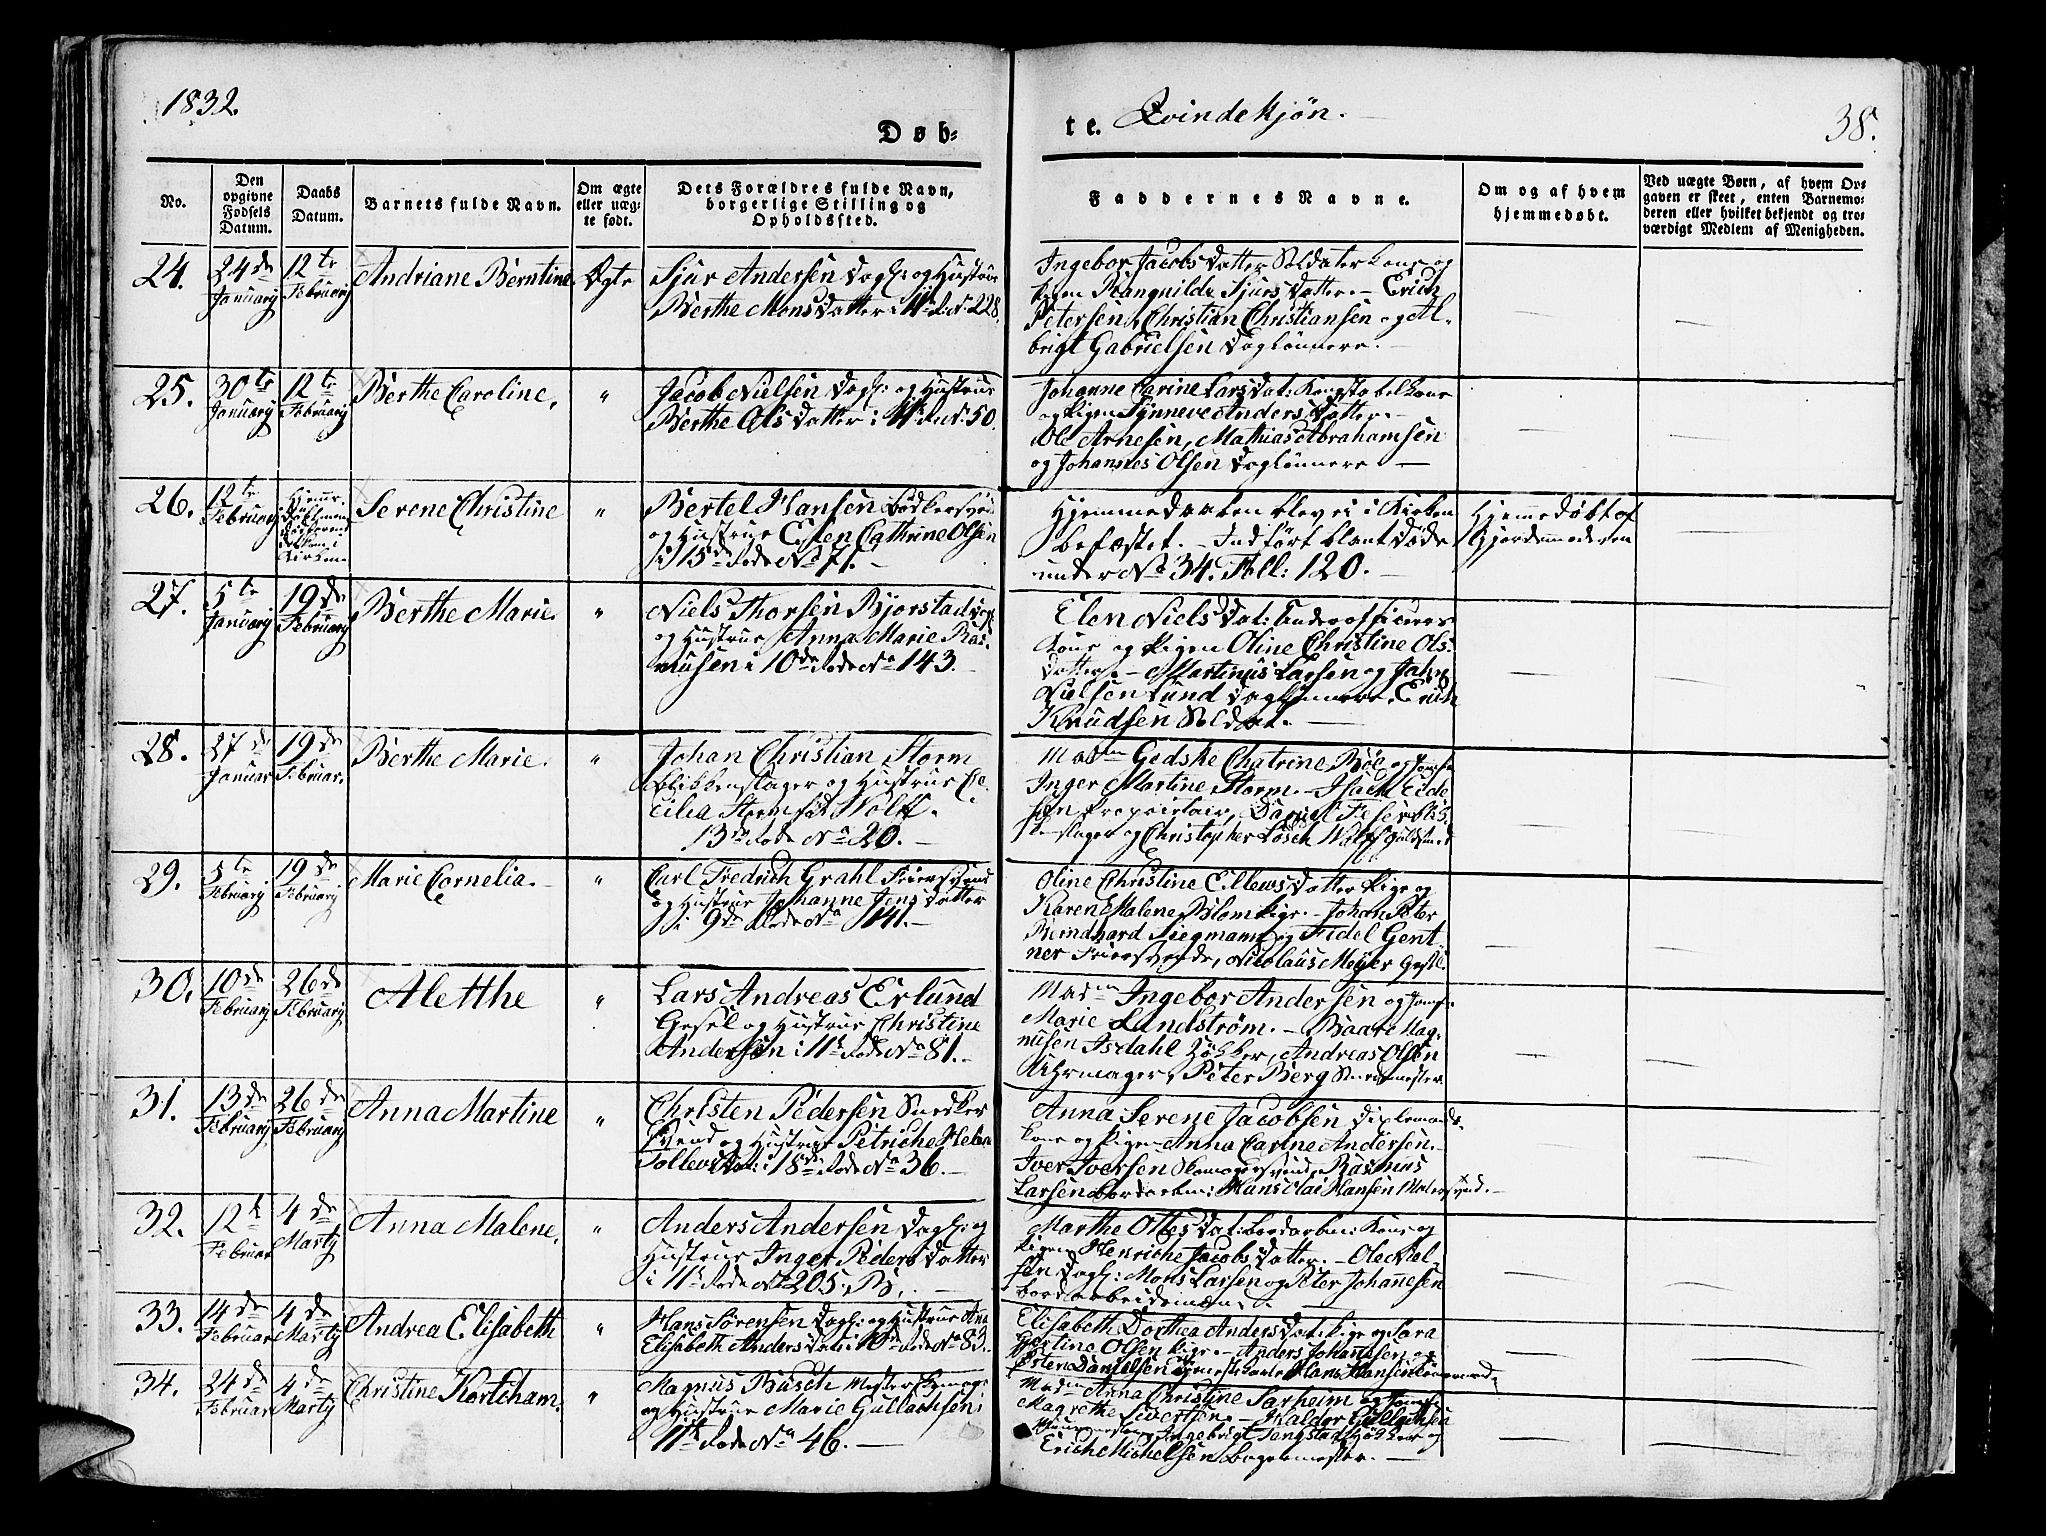 1832.
Døb-
te. Qvindekjøn.
38.
No.
Den opgivne Fødsels Datum.
Daabs Datum.
Barnets fulde Navn.
Om ægte eller uægte født.
Dets Forældres fulde Navn, borgerlige Stilling og Opholdssted.
Faddernes Navne.
Om og af hvem hjemmedøbt.
Ved uægte Børn, af hvem Opgaven er skeet, enten Barnemoderen eller hvilket bekjendt og troværdigt Medlem af Menigheden.
24. 24de January 12te February Andriane Berntine Ægte
Sjur Andersen Dagl: og Hustrue
Berthe Monsdatter i 11te Rode No 228.
Ingebor Jacobsdatter Soldaterkone og
Pigen Rangnilde Sjursdatter. – Erich
Petersen, Christian Christiansen og Al-
brigt Gabrielsen Daglønnere. –
25. 30te January 12te February Berthe Caroline, "
Jacob Nielsen Dagl: og Hustrue
Berthe Olsdatter i 11te Rode No 50.
Johanne Carine Larsdat:
og Pigen Synneve Andersdatter. –
Ole Arnesen, Mathias Abrahamsen
og Johannes Olsen Daglønnere –
26. 12te February Serene Christine "
Bertel Hansen Bødkersvend
og Hustrue Elen Cathrine Olsen
i 15de Rode No 71. –
Hjemmedaaben blev ei i Kirken
befæstet. – Indført blant Døde
under No 34. Foll: 120. –
Hjemmedøbt af
Gjordemoderen
27. 5te January 19de February Berthe Marie. "
Niels Thorsen Bjorstad
og Hustrue Anna Marie Ras-
musen i 10de Rode No 143. –
Elen Nielsdat: Underofficeers
Kone og Pigen Oline Christine Ols-
datter. – Martinus Larsen og John
Nielsen Lund Daglønnere, Erich
Knudsen Soldat. –
28. 27de Januar 19de Februar. Berthe Marie. "
Johan Christian Storm
Blikkenslager og Hustrue Ce-
cilia Storm fød Wolff.
13de Rode No 20. –
Madm Gedske Chatrine Bøe og Jomfr
Inger Martine Storm. – Isach Eide
Daniel
og Christopher Løsch Wolff Guldsmed
29. 5te February 19de February Marie Cornelia. – "
Carl Fredrich Grahl
og Hustrue Johanne Jensdatter
i 9de Rode No 141. –
Oline Christine Ellewsdatter Pige og
Karen Malene Blom Pige. – Johan Peter
Berndhard Siegmann og Fidel Gent-
ner, Nicolaus Meyer
30. 10de February 26de February Aletthe "
Lars Andreas Erlund
Gesel og Hustrue Christine
Andersen i 11te Rode No 81. –
Madm Ingebor Andersen og Jomfr
Marie Lundstrøm. – Baare Mag-
nusen Asdahl, Andreas Olsen
Uhrmager, Peter Berg
31. 13de February 26de February Anna Martine "
Christen Pedersen Snedker
Svend og Hustrue Petriche Helene
Tollevsdat: i 18de Rode No 36. –
Anna Serene Jacobsen
Kone og Pigen Anna Carine Andersen. –
Iver Iversen, Rasmus
Larsen Hans Olai Hansen Malersvend. –
32. 12te Februar 4de Marty Anna Malene, "
Anders Andersen Dagl: og
Hustrue Inger Pedersdatter
i 11te Rode No 205, B. –
Marthe Ottesdat: Kone og
Pigen Henriche Jacobsdatter. – Ole
sen Dagl: Mons Larsen og Peter Johannesen
33. 14de Februar 4de Marty Andrea Elisabeth "
Hans Sørensen Dagl: og Hustrue Ane
Elisabeth Andersdat: i 10de Rode No 83.
Elisabeth Dorthea Andersdat: Pige og Sara
Olsen Pige – Anders Johannesen og
Østen Danielsen Hans Hansen
34. 24de Februar 4de Marty Christine Kortcham. "
Magnus Busch Mester
og Hustrue Marie Gullachsen i
11te Rode No 46. –
Madm Anna Christine Sarheim og Jomfr
Magrethe Sivertsen. – Haldor Gullachsen
Ingebrigt og
Erich Michelsen Bagermester. –